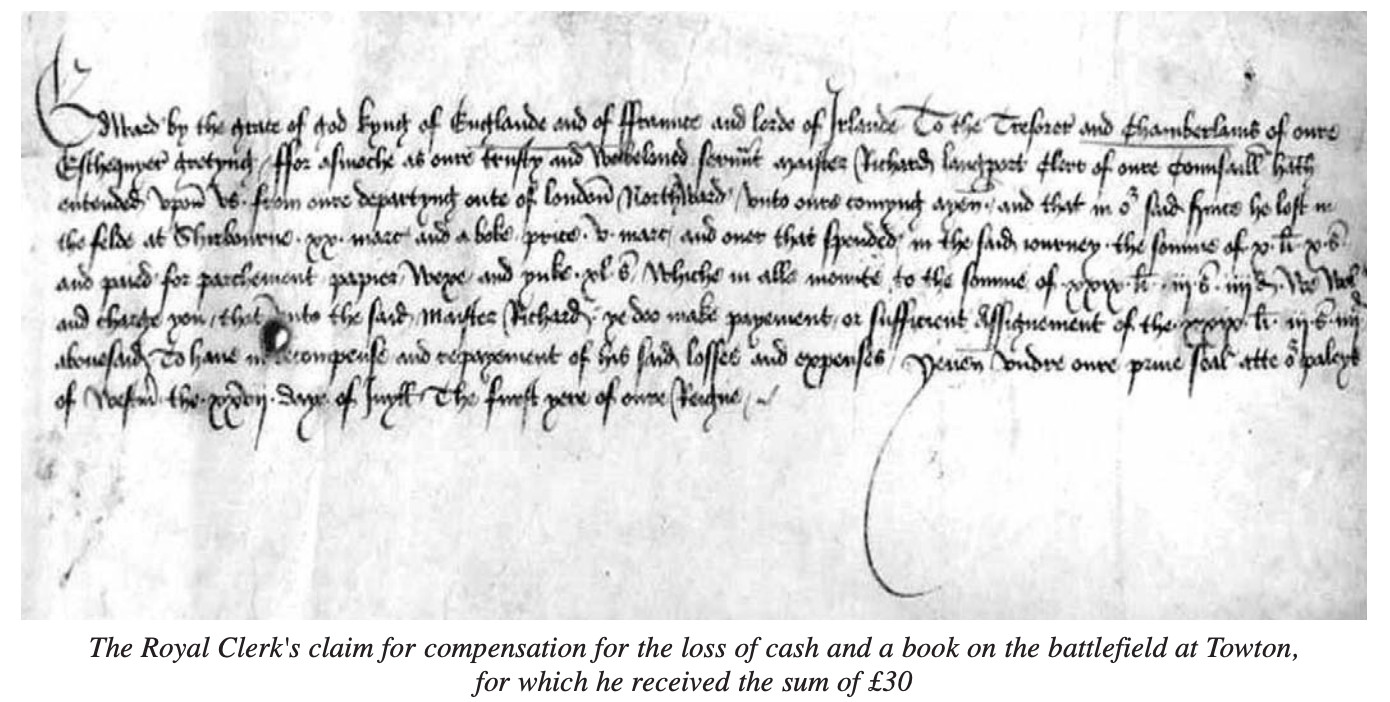 Edward by the grace of god kyng of Englande and of ffraunce and lorde of Irlande To the Tresorer and Chamberlains of oure
Eschequyer gretyng / ffor asmoche as oure trusty and Welbeloued seruñt maister Richard langport Clerc of oure Counsaill hath
entended vpon vs from oure departyng oute of london Northward / vnto oure comyng ayen / and that in oʳ said seruice he lost in
the felde at Shirbourne . xx . marc and a boke price . v . marc and ouer that spended in the said iourney the somme of x . li x . s
and paied for parchement papier Wexe and ynke . xl . s / Whiche in alle mounte to the somme of xxix . li . iij . s . iiij d . We Wol
and charge you / that vnto the said Maister Richard ye doo make payement / or sufficient Assignement of the xxix . li . iij . s . iiij d
abouesaid To haue in recompense and repayement of his said losses and expenses / Yeuen vndre oure priue seal atte oʳ paleys
of Westm̃ the . xxvij . day of Juyll The furst yere of oure Reigne /
The Royal Clerk's claim for compensation for the loss of cash and a book on the battlefield at Towton,
for which he received the sum of £30